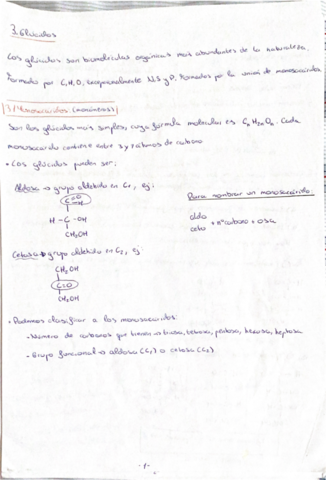 3. Glúcidos
Los glúcidos son biomoléculas orgánicas más abundantes de la naturaleza.
Formado por C, H, O, excepcionalmente N, S y P. Formados por la unión de monosacáridos
3.1 Monosacáridos (monómeros)
Son los glúcidos más simples, cuya fórmula molecular es CnH2nOn. Cada
monosacárido contiene entre 3 y 7 átomos de carbono
• Los glúcidos pueden ser:
Aldosa → grupo aldehído en C1, ej:
H - C - OH
CH2OH
Para nombrar un monosacárido:
aldo
ceto
+ nº carbono + osa
Cetosa → grupo aldehído en C2, ej:
CH2OH
C=O
CH2OH
• Podemos clasificar a los monosacáridos:
• Número de carbonos que tienen → triosa, tetrosa, pentosa, hexosa, heptosa
• Grupo funcional → aldosa (C1) o cetosa (C2)
-1-